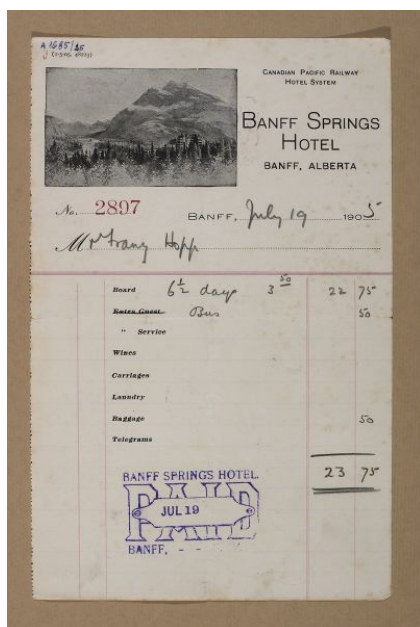 A 1685/25
CANADIAN PACIFIC RAILWAY
HOTEL SYSTEM
BANFF SPRINGS
HOTEL
BANFF, ALBERTA
No. 2897
BANFF, July 19 1905
Mr Franz Hopp
Board 6½ days 3 50 22 75
Extra Guest Bus 50
" Service
Wines
Carriages
Laundry
Baggage 50
Telegrams
23 75
BANFF SPRINGS HOTEL.
PAID
JUL 19
BANFF, - -